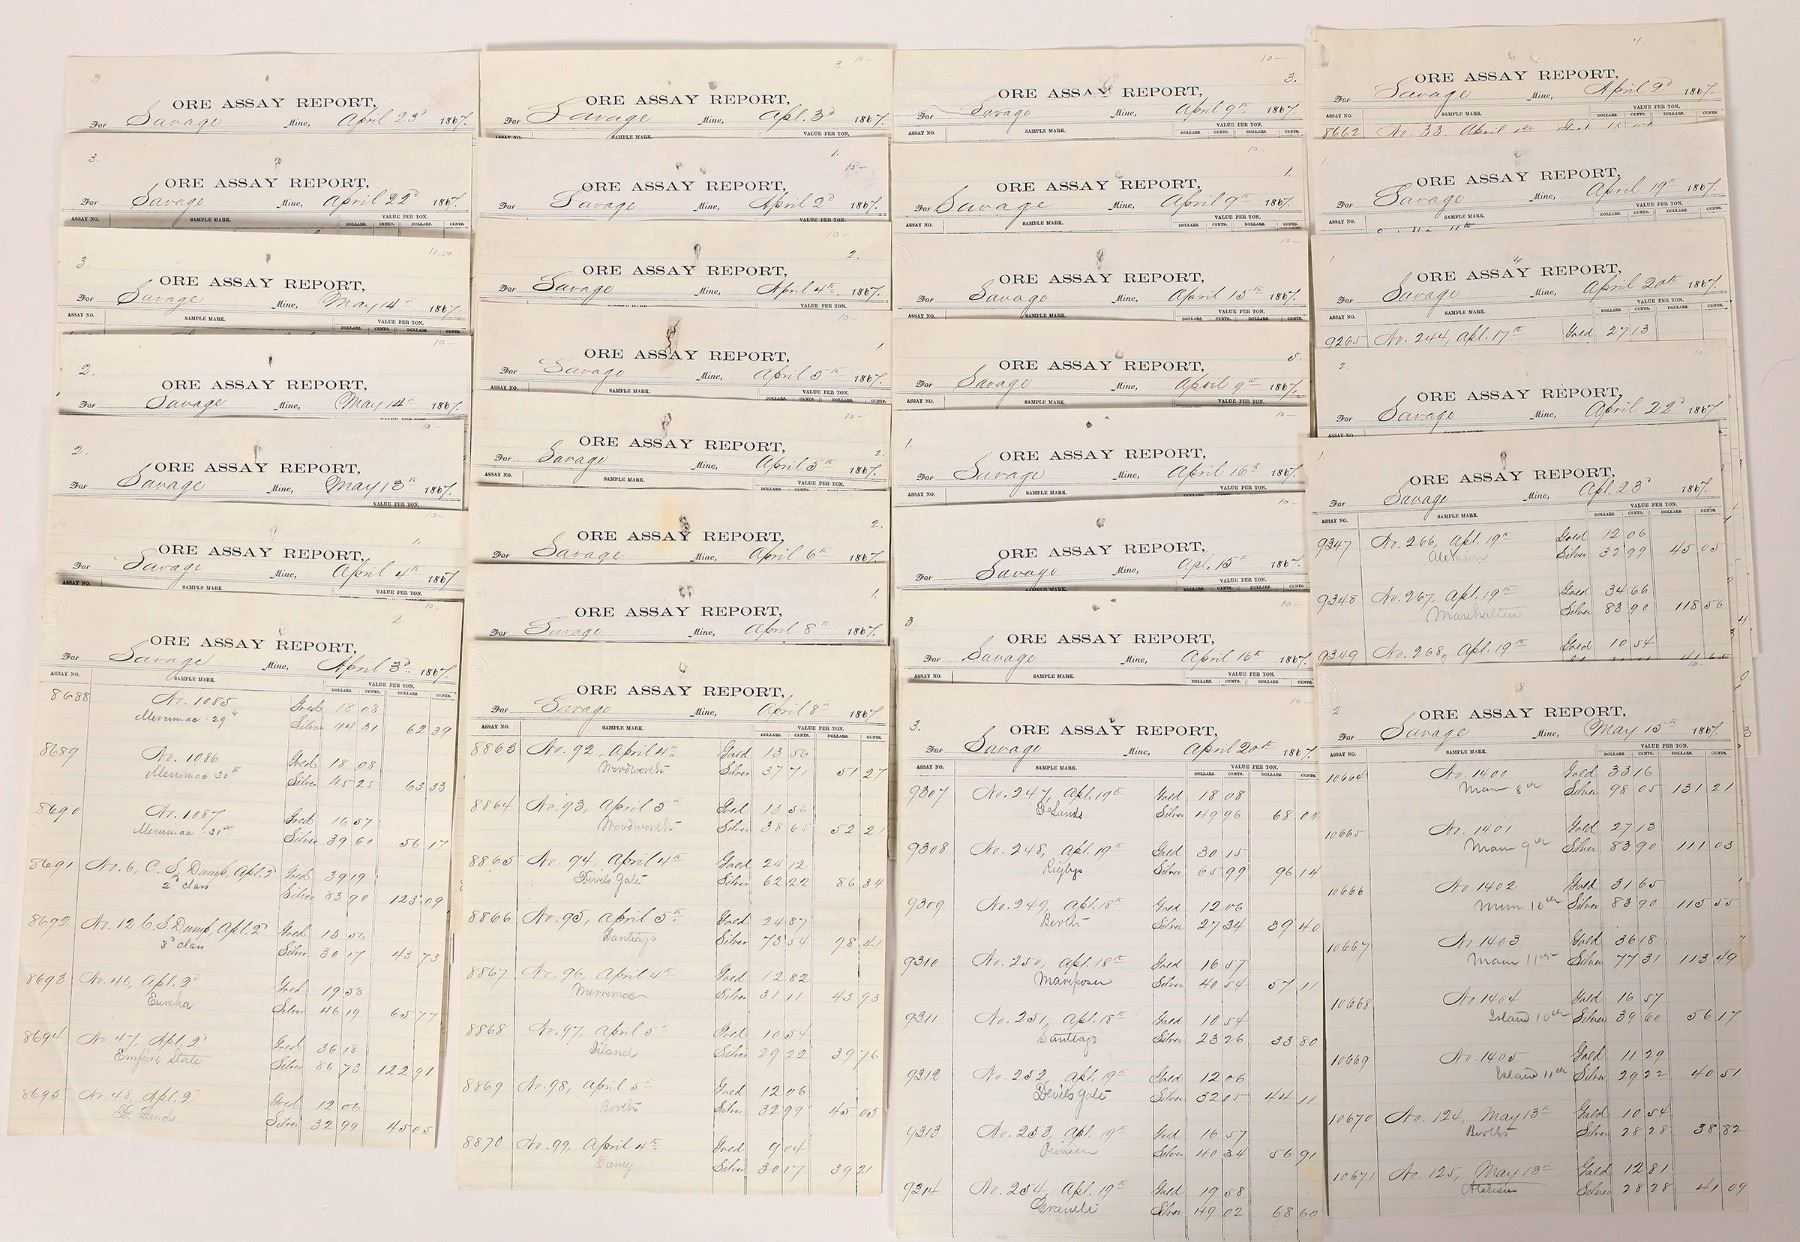 3
ORE ASSAY REPORT,
For Savage Mine, April 23d 1867.
3.
ORE ASSAY REPORT,
For Savage Mine, April 22d 1867.
ASSAY NO. SAMPLE MARK. VALUE PER TON.
DOLLARS. CENTS. DOLLARS. CENTS.
3. 10.00
ORE ASSAY REPORT,
For Savage Mine, May 14th 1867.
ASSAY NO. SAMPLE MARK. VALUE PER TON.
DOLLARS. CENTS. DOLLARS. CENTS.
2. 10-
ORE ASSAY REPORT,
For Savage Mine, May 14th 1867.
2. 10-
ORE ASSAY REPORT,
For Savage Mine, May 13th 1867.
VALUE PER TON.
1. 10-
ORE ASSAY REPORT,
For Savage Mine, April 4th 1867.
ASSAY NO. SAMPLE MARK. VALUE PER TON.
2. 10-
ORE ASSAY REPORT,
For Savage Mine, April 3d 1867.
ASSAY NO. SAMPLE MARK. VALUE PER TON.
DOLLARS. CENTS. DOLLARS. CENTS.
8688 No. 1085 Gold 18 08
Merrimac 29th Silver 44 31 62 39
8689 No. 1086 Gold 18 08
Merrimac 30th Silver 45 25 63 33
8690 No. 1087 Gold 16 57
Merrimac 31st Silver 39 60 56 17
8691 No. 6, C. S. Dump, Apl. 2d Gold 39 19
2d class Silver 83 90 123 09
8692 No. 12 C. S. Dump, Apl. 2d Gold 13 56
3d class Silver 30 17 43 73
8693 No. 46, Apl. 2d Gold 19 58
Eureka Silver 46 19 65 77
8694 No. 47, Apl. 2d Gold 36 18
Empire State Silver 86 73 122 91
8695 No. 48, Apl. 2d Gold 12 06
Silver 32 99 45 05
3. 10-
ORE ASSAY REPORT,
For Savage Mine, Apl. 3d 1867.
ASSAY NO. SAMPLE MARK. VALUE PER TON.
1. 10-
ORE ASSAY REPORT,
For Savage Mine, April 2d 1867.
VALUE PER TON.
10- 2.
ORE ASSAY REPORT,
For Savage Mine, April 4th 1867.
VALUE PER TON.
10- 1
ORE ASSAY REPORT,
For Savage Mine, April 5th 1867.
ASSAY NO. SAMPLE MARK. VALUE PER TON.
DOLLARS. CENTS. DOLLARS. CENTS.
10- 2.
ORE ASSAY REPORT,
For Savage Mine, April 5th 1867.
ASSAY NO. SAMPLE MARK. VALUE PER TON.
2.
ORE ASSAY REPORT,
For Savage Mine, April 6th 1867.
1.
ORE ASSAY REPORT,
For Savage Mine, April 8th 1867.
ORE ASSAY REPORT,
For Savage Mine, April 8th 1867.
ASSAY NO. SAMPLE MARK. VALUE PER TON.
DOLLARS. CENTS. DOLLARS. CENTS.
8863 No. 92, April 4th Gold 13 56
Wordworth Silver 37 71 51 27
8864 No. 93, April 5th Gold 13 56
Wordworth Silver 38 65 52 21
8865 No. 94, April 4th Gold 24 12
Devils Gate Silver 62 22 86 34
8866 No. 95, April 5th Gold 24 87
Santiago Silver 73 54 98 41
8867 No. 96, April 4th Gold 12 82
Merrimac Silver 31 11 43 93
8868 No. 97, April 5th Gold 10 54
Island Silver 29 22 39 76
8869 No. 98, April 5th Gold 12 06
Bertha Silver 32 99 45 05
8870 No. 99, April 4th Gold 9 04
Daney Silver 30 17 39 21
10- 3.
ORE ASSAY REPORT,
For Savage Mine, April 9th 1867.
ASSAY NO. SAMPLE MARK. VALUE PER TON.
DOLLARS. CENTS. DOLLARS. CENTS.
10- 1.
ORE ASSAY REPORT,
For Savage Mine, April 9th 1867.
ASSAY NO. SAMPLE MARK. VALUE PER TON.
DOLLARS. CENTS. DOLLARS. CENTS.
10-
ORE ASSAY REPORT,
For Savage Mine, April 15th 1867.
ASSAY NO. SAMPLE MARK. VALUE PER TON.
DOLLARS. CENTS. DOLLARS. CENTS.
5.
ORE ASSAY REPORT,
For Savage Mine, April 9th 1867.
ASSAY NO. SAMPLE MARK. VALUE PER TON.
1. 10-
ORE ASSAY REPORT,
For Savage Mine, April 16th 1867.
ASSAY NO. SAMPLE MARK. VALUE PER TON.
10-
ORE ASSAY REPORT,
For Savage Mine, Apl. 15th 1867.
ASSAY NO. SAMPLE MARK. VALUE PER TON.
DOLLARS. CENTS. DOLLARS. CENTS.
3. 10-
ORE ASSAY REPORT,
For Savage Mine, April 16th 1867.
ASSAY NO. SAMPLE MARK. VALUE PER TON.
DOLLARS. CENTS. DOLLARS. CENTS.
3. 10-
ORE ASSAY REPORT,
For Savage Mine, April 20th 1867.
ASSAY NO. SAMPLE MARK. VALUE PER TON.
DOLLARS. CENTS. DOLLARS. CENTS.
9307 No. 247, Apl. 19th Gold 18 08
Silver 49 96 68 04
9308 No. 248, Apl. 19th Gold 30 15
Rigbys Silver 65 99 96 14
9309 No. 249, Apl. 18th Gold 12 06
Bertha Silver 27 34 39 40
9310 No. 250, Apl. 18th Gold 16 57
Mariposa Silver 40 54 57 11
9311 No. 251, Apl. 18th Gold 10 54
Santiago Silver 23 26 33 80
9312 No. 252, Apl. 19th Gold 12 06
Devils Gate Silver 32 05 44 11
9313 No. 253, Apl. 19th Gold 16 57
Pioneer Silver 40 34 56 91
9314 No. 254, Apl. 19th Gold 19 58
Granite Silver 49 02 68 60
ORE ASSAY REPORT,
For Savage Mine, April 2d 1867.
ASSAY NO. SAMPLE MARK. VALUE PER TON.
DOLLARS. CENTS. DOLLARS. CENTS.
8662 No. 33. April 1st Gold
1
ORE ASSAY REPORT,
For Savage Mine, April 19th 1867.
ASSAY NO. SAMPLE MARK. VALUE PER TON.
DOLLARS. CENTS. DOLLARS. CENTS.
1
ORE ASSAY REPORT,
For Savage Mine, April 20th 1867.
ASSAY NO. SAMPLE MARK. VALUE PER TON.
DOLLARS. CENTS. DOLLARS. CENTS.
9265 No. 244, Apl. 17th Gold 27 13
2.
ORE ASSAY REPORT,
For Savage Mine, April 22d 1867.
ASSAY NO. SAMPLE MARK. VALUE PER TON.
1
ORE ASSAY REPORT,
For Savage Mine, Apl. 23d 1867.
ASSAY NO. SAMPLE MARK. VALUE PER TON.
DOLLARS. CENTS. DOLLARS. CENTS.
9347 No. 266, Apl. 19th Gold 12 06
Silver 32 99 45 05
9348 No. 267, Apl. 19th Gold 34 66
Manhattan Silver 83 90 118 56
9349 No. 268, Apl. 19th Gold 10 54
2. 10-
ORE ASSAY REPORT,
For Savage Mine, May 15th 1867.
ASSAY NO. SAMPLE MARK. VALUE PER TON.
DOLLARS. CENTS. DOLLARS. CENTS.
10664 No. 1400 Gold 33 16
8th Silver 98 05 131 21
10665 No. 1401 Gold 27 13
9th Silver 83 90 111 03
10666 No. 1402 Gold 31 65
10th Silver 83 90 115 55
10667 No. 1403 Gold 36 18
11th Silver 77 31 113 49
10668 No. 1404 Gold 16 57
Island 10th Silver 39 60 56 17
10669 No. 1405 Gold 11 29
Island 11th Silver 29 22 40 51
10670 No. 124, May 13th Gold 10 54
Bertha Silver 28 28 38 82
10671 No. 125, May 13th Gold 12 81
Silver 28 28 41 09